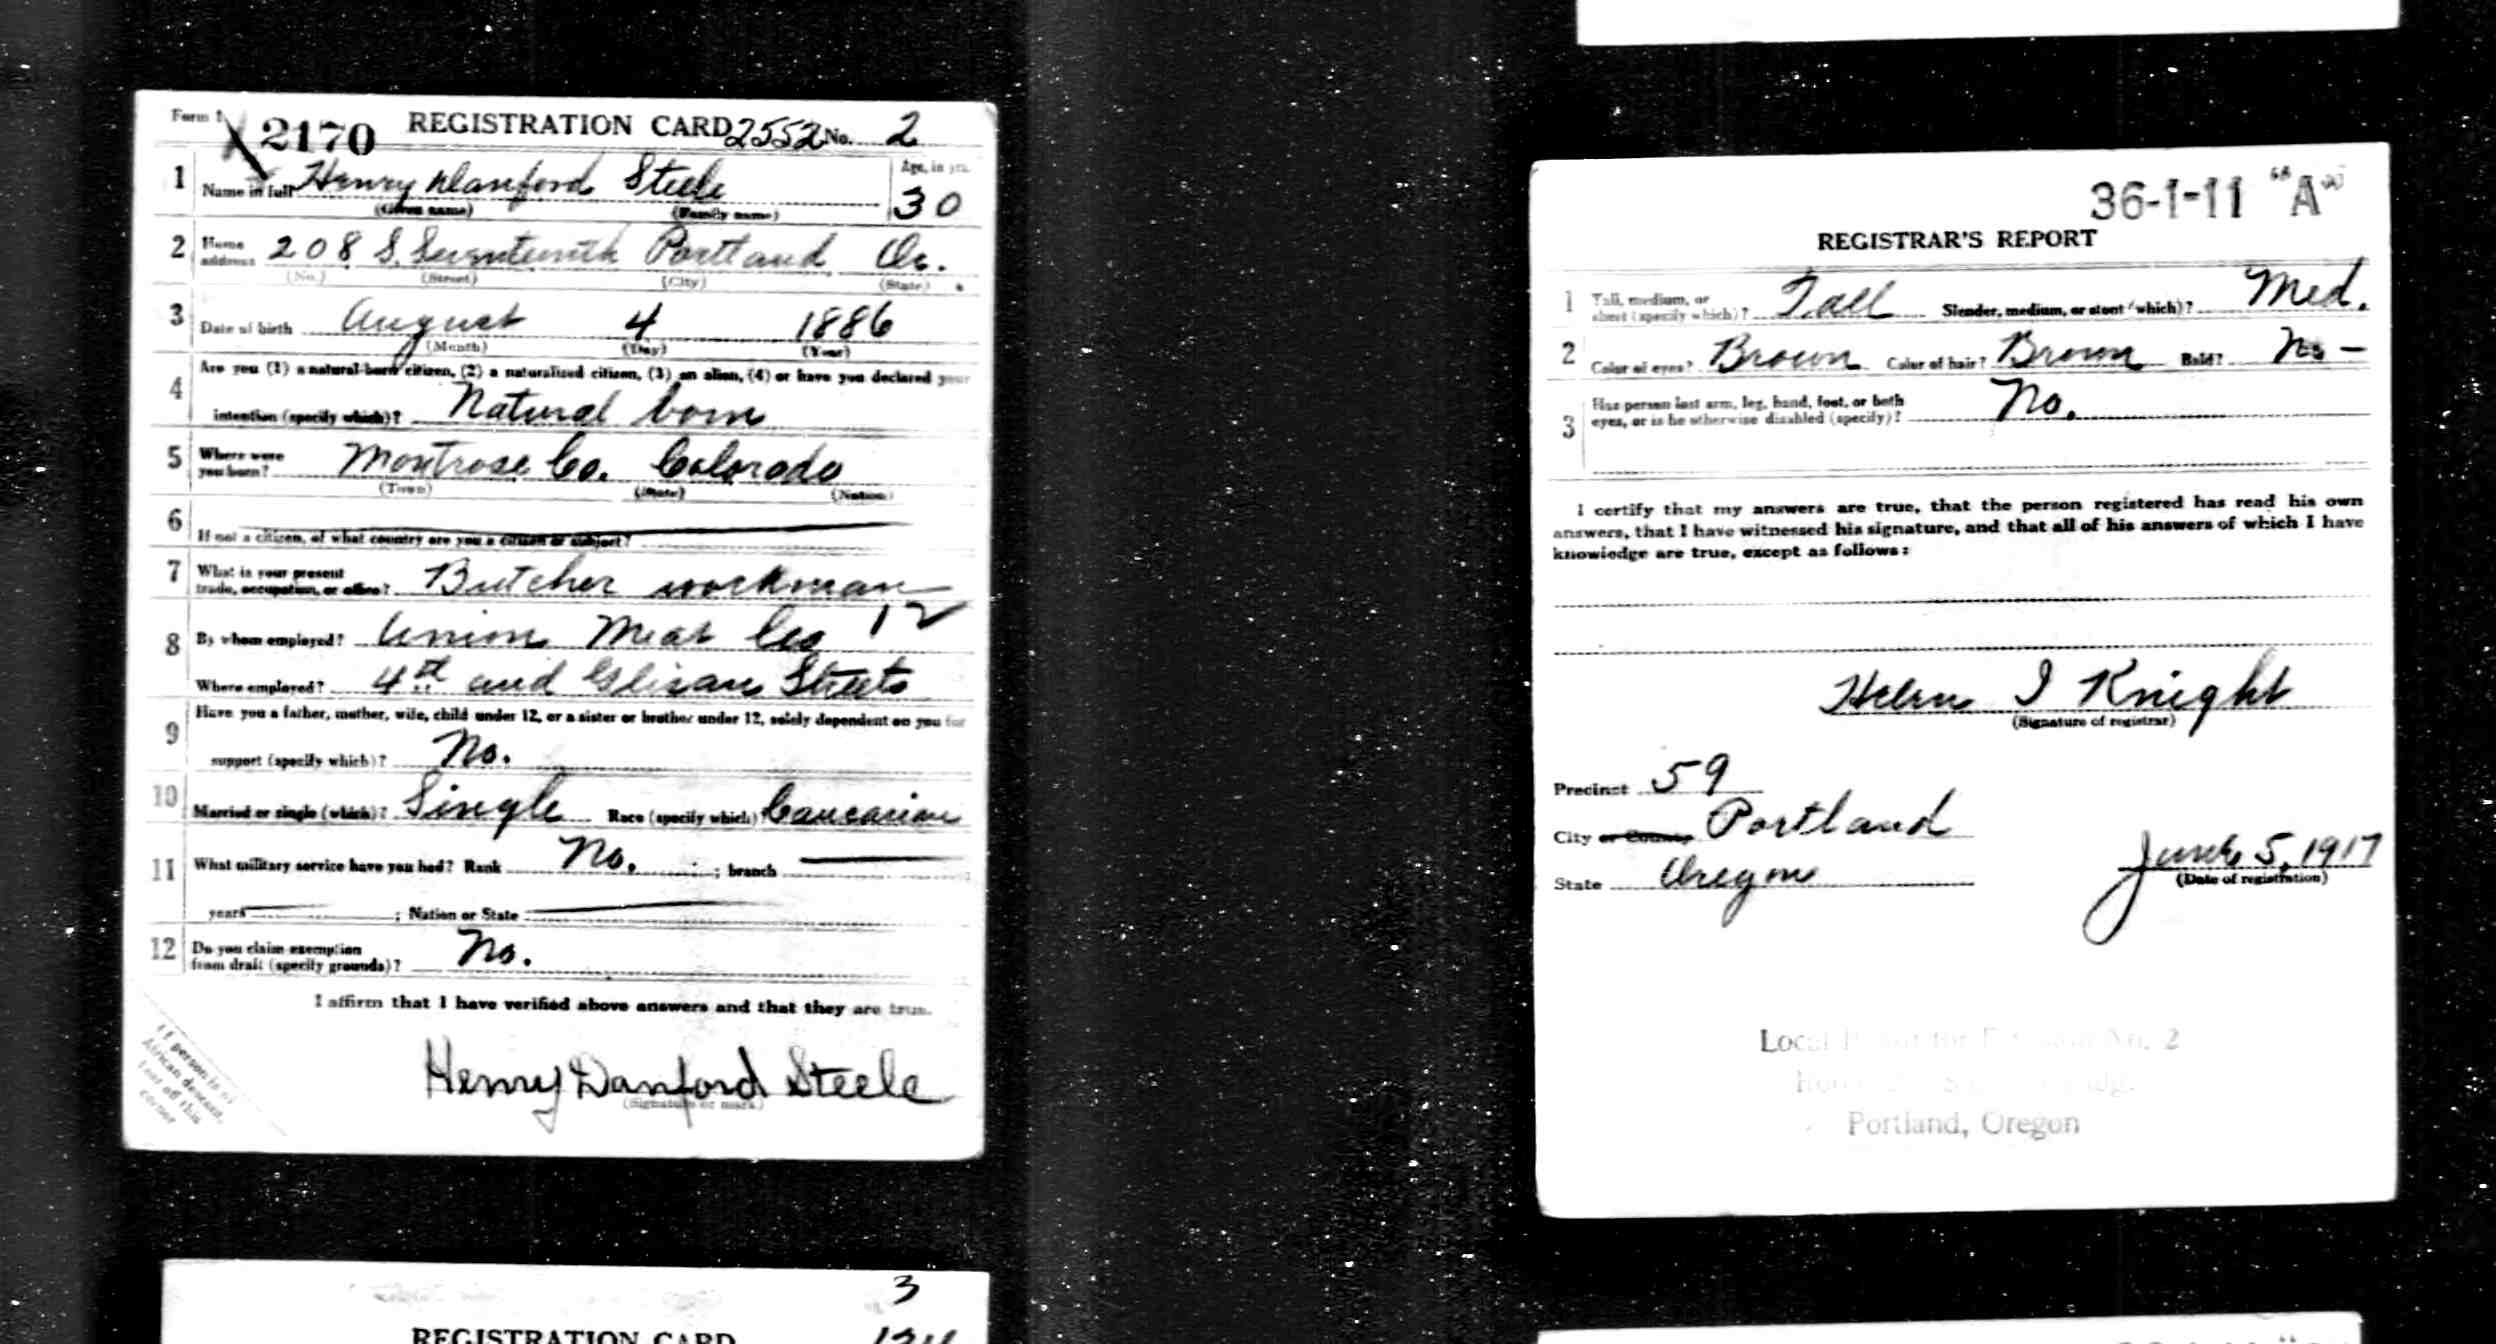 Form 1 2170 REGISTRATION CARD 2552 No. 2
1 Name in full Henry Danford Steele Age, in yrs. 30
(Given name) (Family name)
2 Home address 208 S. Seventeenth Portland Or.
(No.) (Street) (City) (State)
3 Date of birth August 4 1886
(Month) (Day) (Year)
4 Are you (1) a natural-born citizen, (2) a naturalized citizen, (3) an alien, (4) or have you declared your
intention (specify which)? Natural born
5 Where were you born? Montrose Co. Colorado
(Town) (State) (Nation)
6 If not a citizen, of what country are you a citizen or subject?
7 What is your present trade, occupation, or office? Butcher workman
8 By whom employed? Union Meat Co 12
Where employed? 4th and Glisan Streets
9 Have you a father, mother, wife, child under 12, or a sister or brother under 12, solely dependent on you for
support (specify which)? No.
10 Married or single (which)? Single Race (specify which) Caucasian
11 What military service have you had? Rank No. ; branch
years ; Nation or State
12 Do you claim exemption from draft (specify grounds)? No.
I affirm that I have verified above answers and that they are true.
Henry Danford Steele
(Signature or mark)
If person is of
African descent,
tear off this
corner
3
REGISTRATION CARD
36-1-11 "A"
REGISTRAR'S REPORT
1 Tall, medium, or short (specify which)? Tall Slender, medium, or stout (which)? Med.
2 Color of eyes? Brown Color of hair? Brown Bald? No -
3 Has person lost arm, leg, hand, foot, or both
eyes, or is he otherwise disabled (specify)? No.
I certify that my answers are true, that the person registered has read his own
answers, that I have witnessed his signature, and that all of his answers of which I have
knowledge are true, except as follows:
Helen I Knight
(Signature of registrar)
Precinct 59
City or County Portland
State Oregon
June 5, 1917
(Date of registration)
Local No. 2
Portland, Oregon